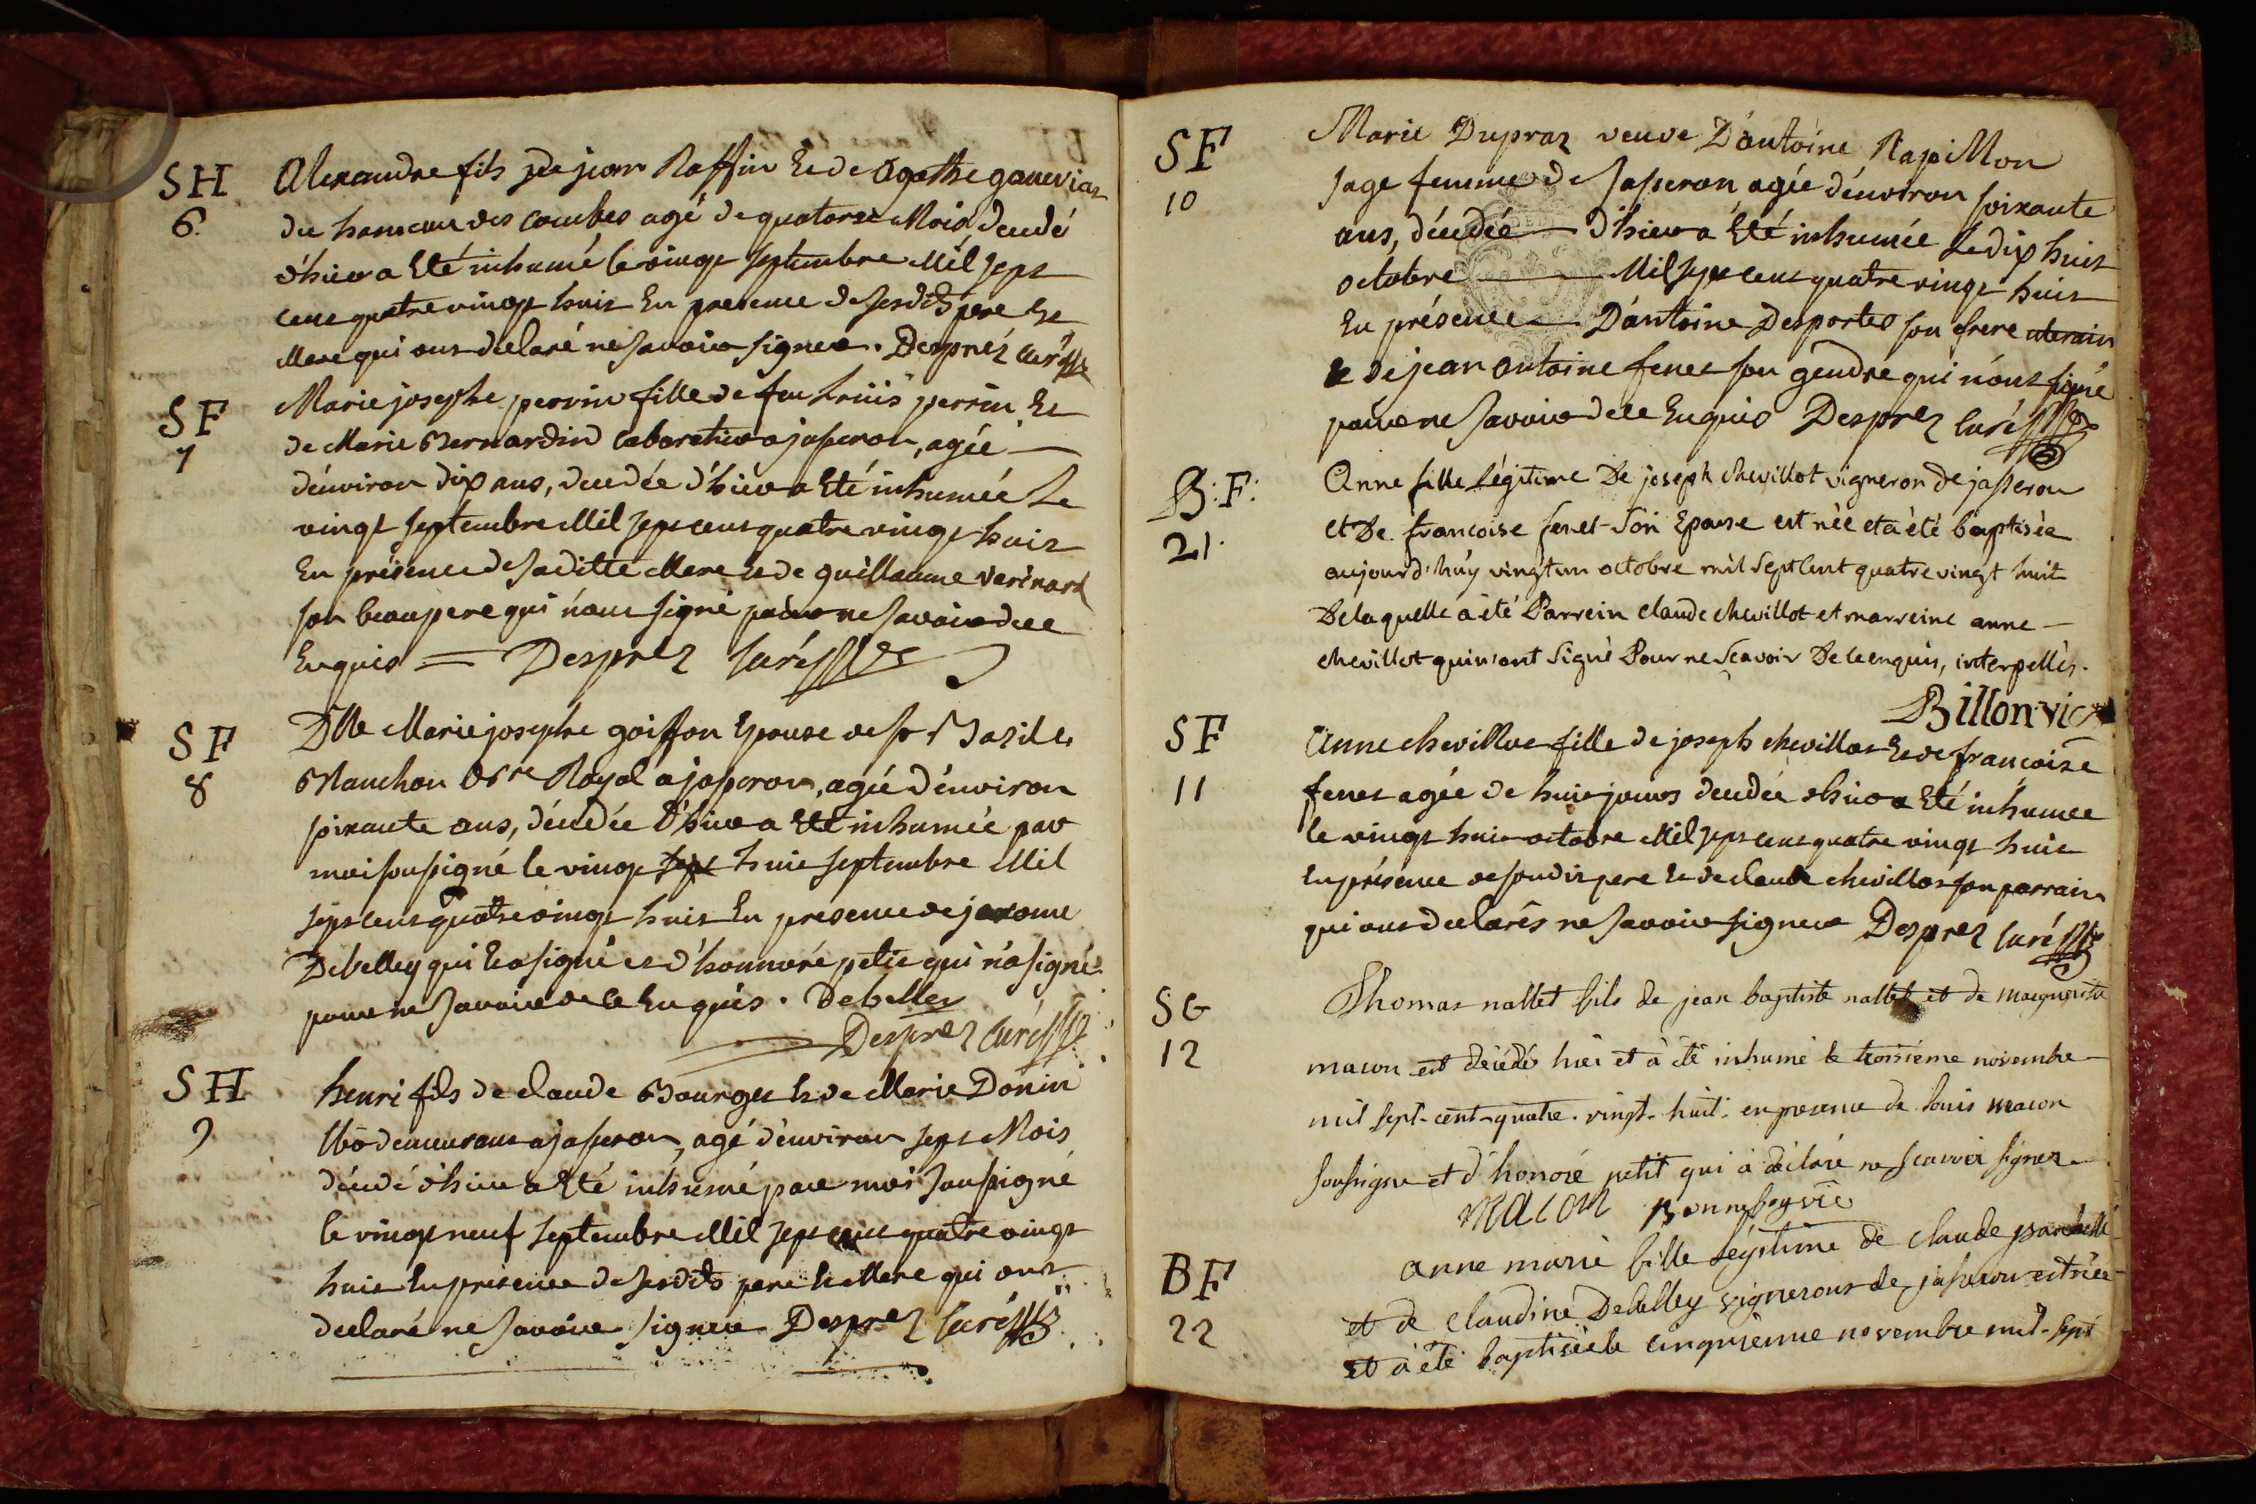 SH
6.
Alexandre fils de jean Raffin Et de Agathe
du hameau des combes agé de quatorze Mois, decedé
d'hier a Eté inhumé le vingt septembre Mil sept
cent quatre vingt huit En presence de sesdits pere Et
Mere qui ont declaré ne savoir signer. Desprez curé
SF
7
Marie josephe perrin fille de feu Loüis perrin Et
de Marie Bernardin cabaretier a jasseron, agée
d'énviron dix ans, decedée d'hier a Eté inhumée Le
vingt septembre Mil sept cent quatre vingt huit
En présence de sa ditte Mere Et de guillaume
son beaupere qui n'ont signé pour ne savoir de ce
Enquis = Desprez curé
SF
8
Dlle Marie josephe goiffon Epouse de sr Bazile
Blanchon Royal a jasseron, agée d'énviron
soixante ans, décedée d'hier a Eté inhumée par
moi soussigné le vingt sept huit septembre Mil
sept cent quatre vingt huit En presence de jerome
Debelley qui Ea signé et d'honnoré petit qui n'a signé
pour ne savoir de ce Enquis. Debelley
Desprez curé
SH
9
henri fils de claude Bourget Et de Marie Donin
demeurant a jasseron, agé d'énviron sept Mois
décedé d'hier a Eté inhumé par moi soussigné
le vingt neuf septembre Mil sept cent quatre vingt
huit En presence de sesdits pere Et Mere qui ont
declaré ne savoir signer Desprez curé
SF
10
Marie Dupraz veuve D'antoine Rapillon
sage femme de Jasseron agée d'énviron soixante
ans, décedée d'hier a Eté inhumée Le dix huit
octobre Mil sept cent quatre vingt huit
En présence D'antoine Desportes son frere uterain
& de jean antoine fenet son gendre qui n'ont signé
pour ne savoir de ce Enquis Desprez curé
B:F:
21.
Anne fille Légitime De joseph chevillot vigneron de jasseron
et De francoise fenet Son Epouse est née et a été baptisée
aujourd'huy vingt un octobre mil sept cent quatre vingt huit
De laquelle a été Parrein claude chevillot et marreine anne
chevillot qui n'ont Signé Pour ne Scavoir De ce enquis, interpellés.
Billon vic
SF
11
Anne chevillot fille de joseph chevillot Et de francoise
fenet agée de huit jours decedée d'hier a Eté inhumée
le vingt huit octobre Mil sept cent quatre vingt huit
En présence de son dit pere Et de claude chevillot son parrain
qui ont declarés ne savoir signer Desprez curé
SG
12
Thomas nallet fils de jean baptiste nallet et de marguerite
macon est décédé hier et à été inhumé le troisième novembre
mil sept-cent-quatre-vingt-huit en presence de Louis macon
soussigné et d'honoré petit qui à déclaré ne scavoir signer
macon Bonneboy vic
BF
22
anne marie fille Légitime de claude
et de claudine Debelley vignerons de jasseron est née
et à été baptisée le cinquieme novembre mil-sept